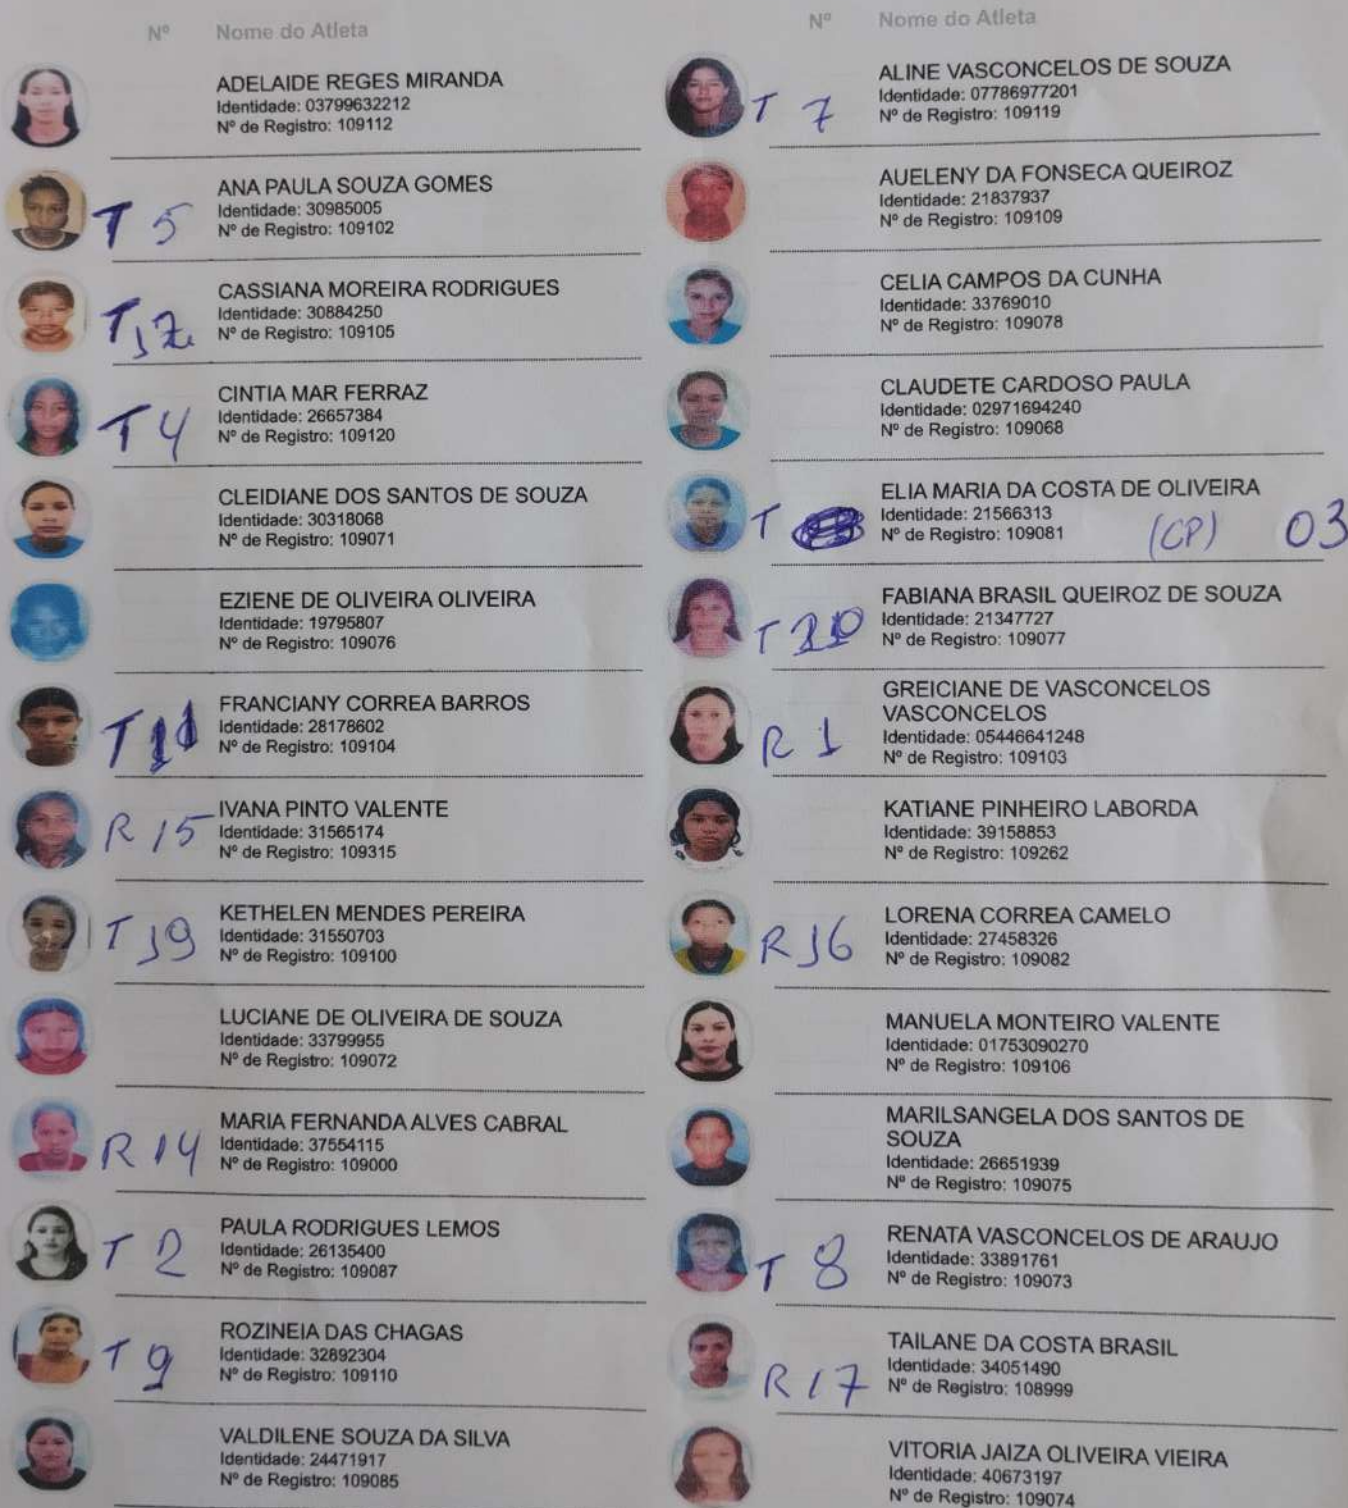 Nº Nome do Atleta
ADELAIDE REGES MIRANDA
Identidade: 03799632212
Nº de Registro: 109112
T 5
ANA PAULA SOUZA GOMES
Identidade: 30985005
Nº de Registro: 109102
T
CASSIANA MOREIRA RODRIGUES
Identidade: 30884250
Nº de Registro: 109105
T 4
CINTIA MAR FERRAZ
Identidade: 26657384
Nº de Registro: 109120
CLEIDIANE DOS SANTOS DE SOUZA
Identidade: 30318068
Nº de Registro: 109071
EZIENE DE OLIVEIRA OLIVEIRA
Identidade: 19795807
Nº de Registro: 109076
T 11
FRANCIANY CORREA BARROS
Identidade: 28178602
Nº de Registro: 109104
R 15
IVANA PINTO VALENTE
Identidade: 31565174
Nº de Registro: 109315
T 19
KETHELEN MENDES PEREIRA
Identidade: 31550703
Nº de Registro: 109100
LUCIANE DE OLIVEIRA DE SOUZA
Identidade: 33799955
Nº de Registro: 109072
R 14
MARIA FERNANDA ALVES CABRAL
Identidade: 37554115
Nº de Registro: 109000
T 2
PAULA RODRIGUES LEMOS
Identidade: 26135400
Nº de Registro: 109087
T 9
ROZINEIA DAS CHAGAS
Identidade: 32892304
Nº de Registro: 109110
VALDILENE SOUZA DA SILVA
Identidade: 24471917
Nº de Registro: 109085
Nº Nome do Atleta
T 7
ALINE VASCONCELOS DE SOUZA
Identidade: 07786977201
Nº de Registro: 109119
AUELENY DA FONSECA QUEIROZ
Identidade: 21837937
Nº de Registro: 109109
CELIA CAMPOS DA CUNHA
Identidade: 33769010
Nº de Registro: 109078
CLAUDETE CARDOSO PAULA
Identidade: 02971694240
Nº de Registro: 109068
T
ELIA MARIA DA COSTA DE OLIVEIRA
Identidade: 21566313
Nº de Registro: 109081 (CP) 03
T
FABIANA BRASIL QUEIROZ DE SOUZA
Identidade: 21347727
Nº de Registro: 109077
R 1
GREICIANE DE VASCONCELOS
VASCONCELOS
Identidade: 05446641248
Nº de Registro: 109103
KATIANE PINHEIRO LABORDA
Identidade: 39158853
Nº de Registro: 109262
R 16
LORENA CORREA CAMELO
Identidade: 27458326
Nº de Registro: 109082
MANUELA MONTEIRO VALENTE
Identidade: 01753090270
Nº de Registro: 109106
MARILSANGELA DOS SANTOS DE
SOUZA
Identidade: 26651939
Nº de Registro: 109075
T 8
RENATA VASCONCELOS DE ARAUJO
Identidade: 33891761
Nº de Registro: 109073
R 17
TAILANE DA COSTA BRASIL
Identidade: 34051490
Nº de Registro: 108999
VITORIA JAIZA OLIVEIRA VIEIRA
Identidade: 40673197
Nº de Registro: 109074